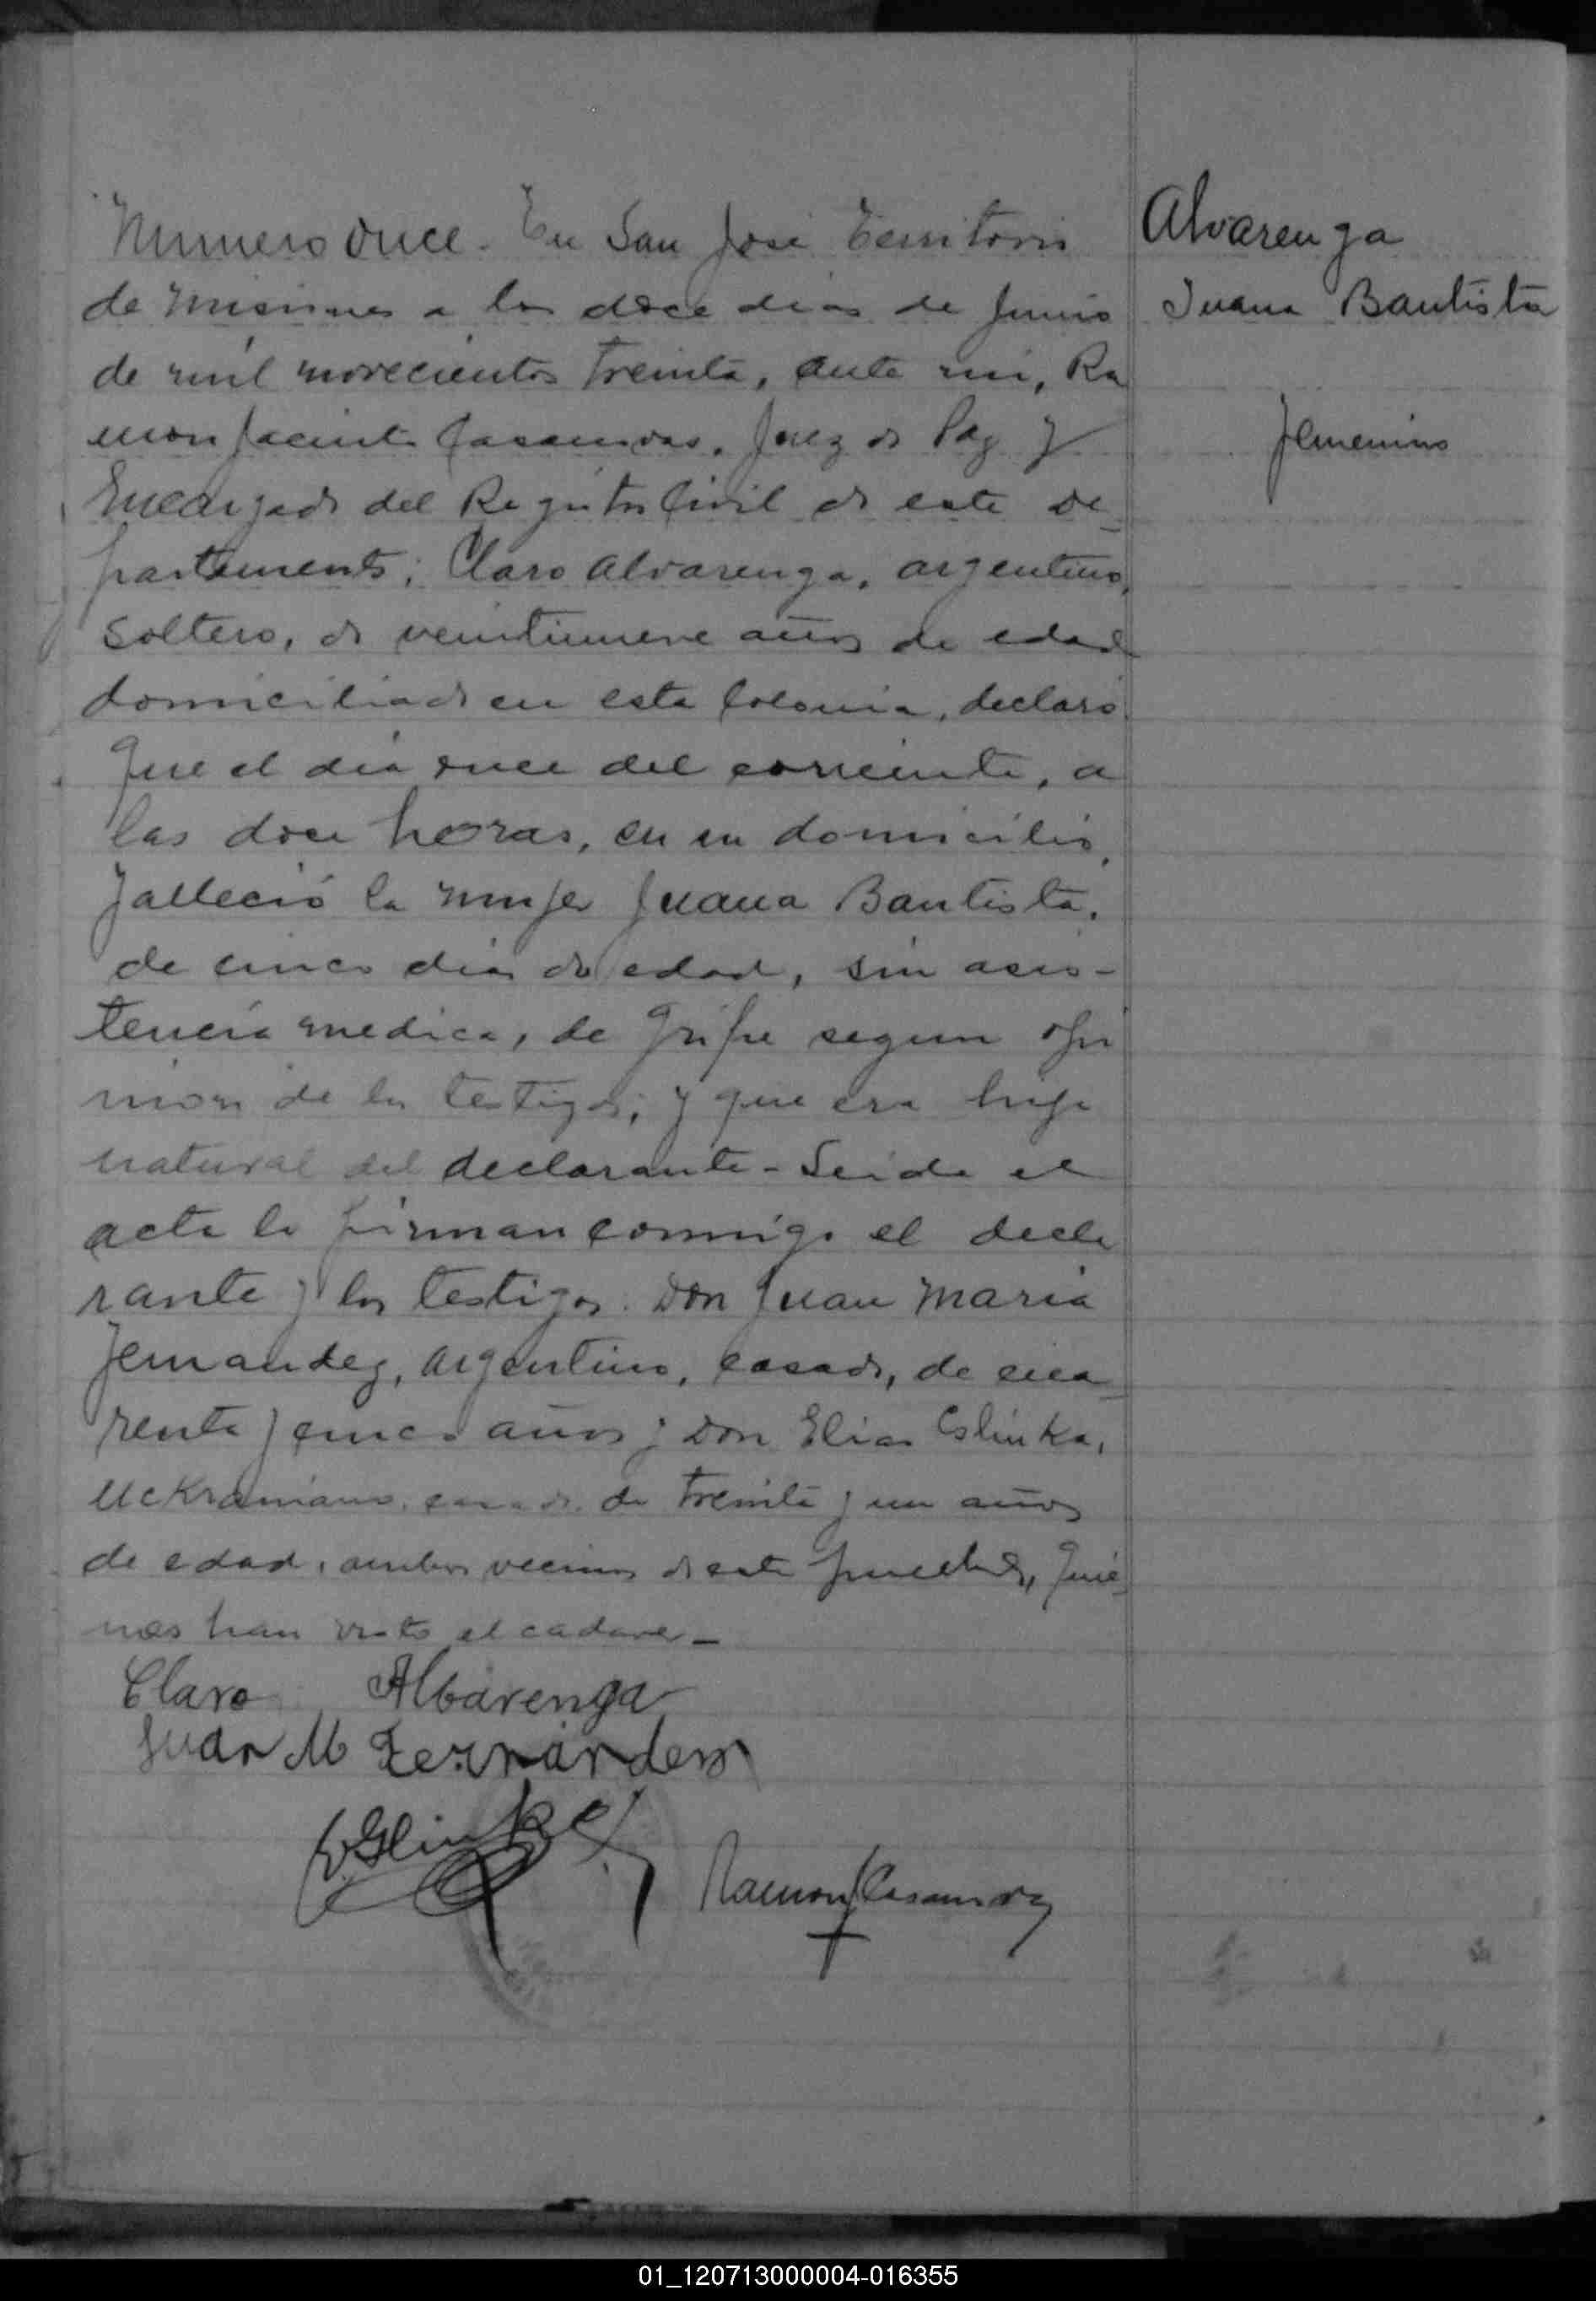 Numero once. En San José Territorio
de Misiones a los doce dias de Junio
de mil novecientos treinta, ante mi, Ra
mon Jacinto Casanovas, Juez de Paz y
Encargado del Registro Civil de este De-
partamento; Claro Alvarenga, argentino,
soltero, de veintinueve años de edad
domiciliado en esta Colonia, declaró
que el dia once del corriente, a
las doce horas, en su domicilio,
falleció la mujer Juana Bautista,
de cinco dias de edad, sin asis-
tencia medica, de gripe segun opi
nion de los testigos; y que era hija
natural del declarante - Leida el
acta la firman conmigo el decla
rante y los testigos. Don Juan Maria
Fernandez, argentino, casado, de cua-
renta y cinco años y Don Elias
Uckraniano, casado, de treinta y un años
de edad, ambos vecinos de este pueblo, quie-
nes han visto el cadaver -
Claro Albarenga
Juan M Fernandez
Glinka
Ramon J Casanovas
Alvarenga
Juana Bautista
femenino
01_120713000004-016355